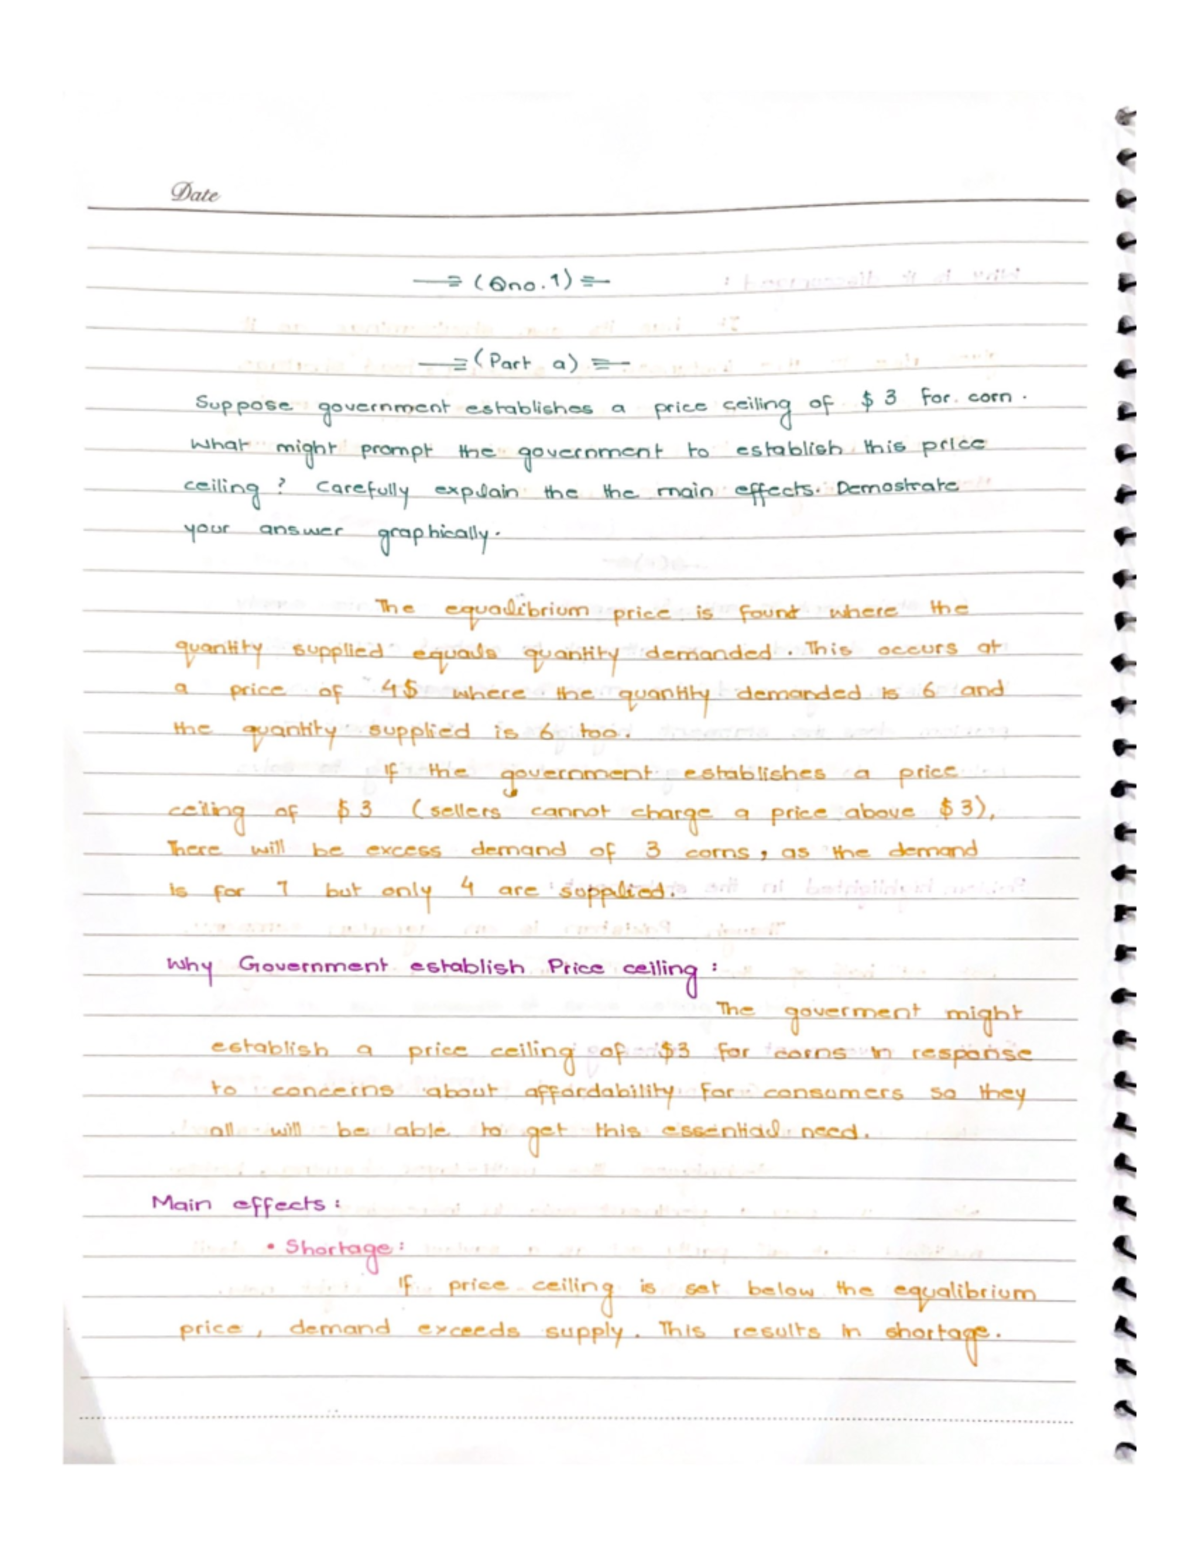 Date
(Qno.1)
(Part a)
Suppose government establishes a price ceiling of $ 3 for corn.
What might prompt the government to establish this price
ceiling? Carefully explain the the main effects. Demostrate
your answer graphically.
The equalibrium price is found where the
quantity supplied equals quantity demanded. This occurs at
a price of 4$ where the quantity demanded is 6 and
the quantity supplied is 6 too.
If the government establishes a price
ceiling of $3 (sellers cannot charge a price above $3),
There will be excess demand of 3 corns, as the demand
is for 7 but only 4 are supplied.
Why Government establish Price ceiling:
The goverment might
establish a price ceiling of $3 for corns in response
to concerns about affordability for consumers so they
all will be able to get this essential need.
Main effects:
• Shortage:
If price ceiling is set below the equalibrium
price, demand exceeds supply. This results in shortage.